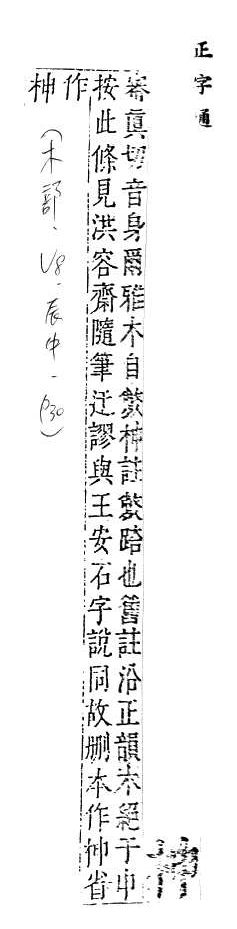 正字通
柛
審眞切音身爾雅木自斃柛註斃踣也舊註沿正韻木絕于申
按此條見洪容齋隨筆迂謬與王安石字說同故刪本作省
作柛
(木部.V8.辰中.P30)